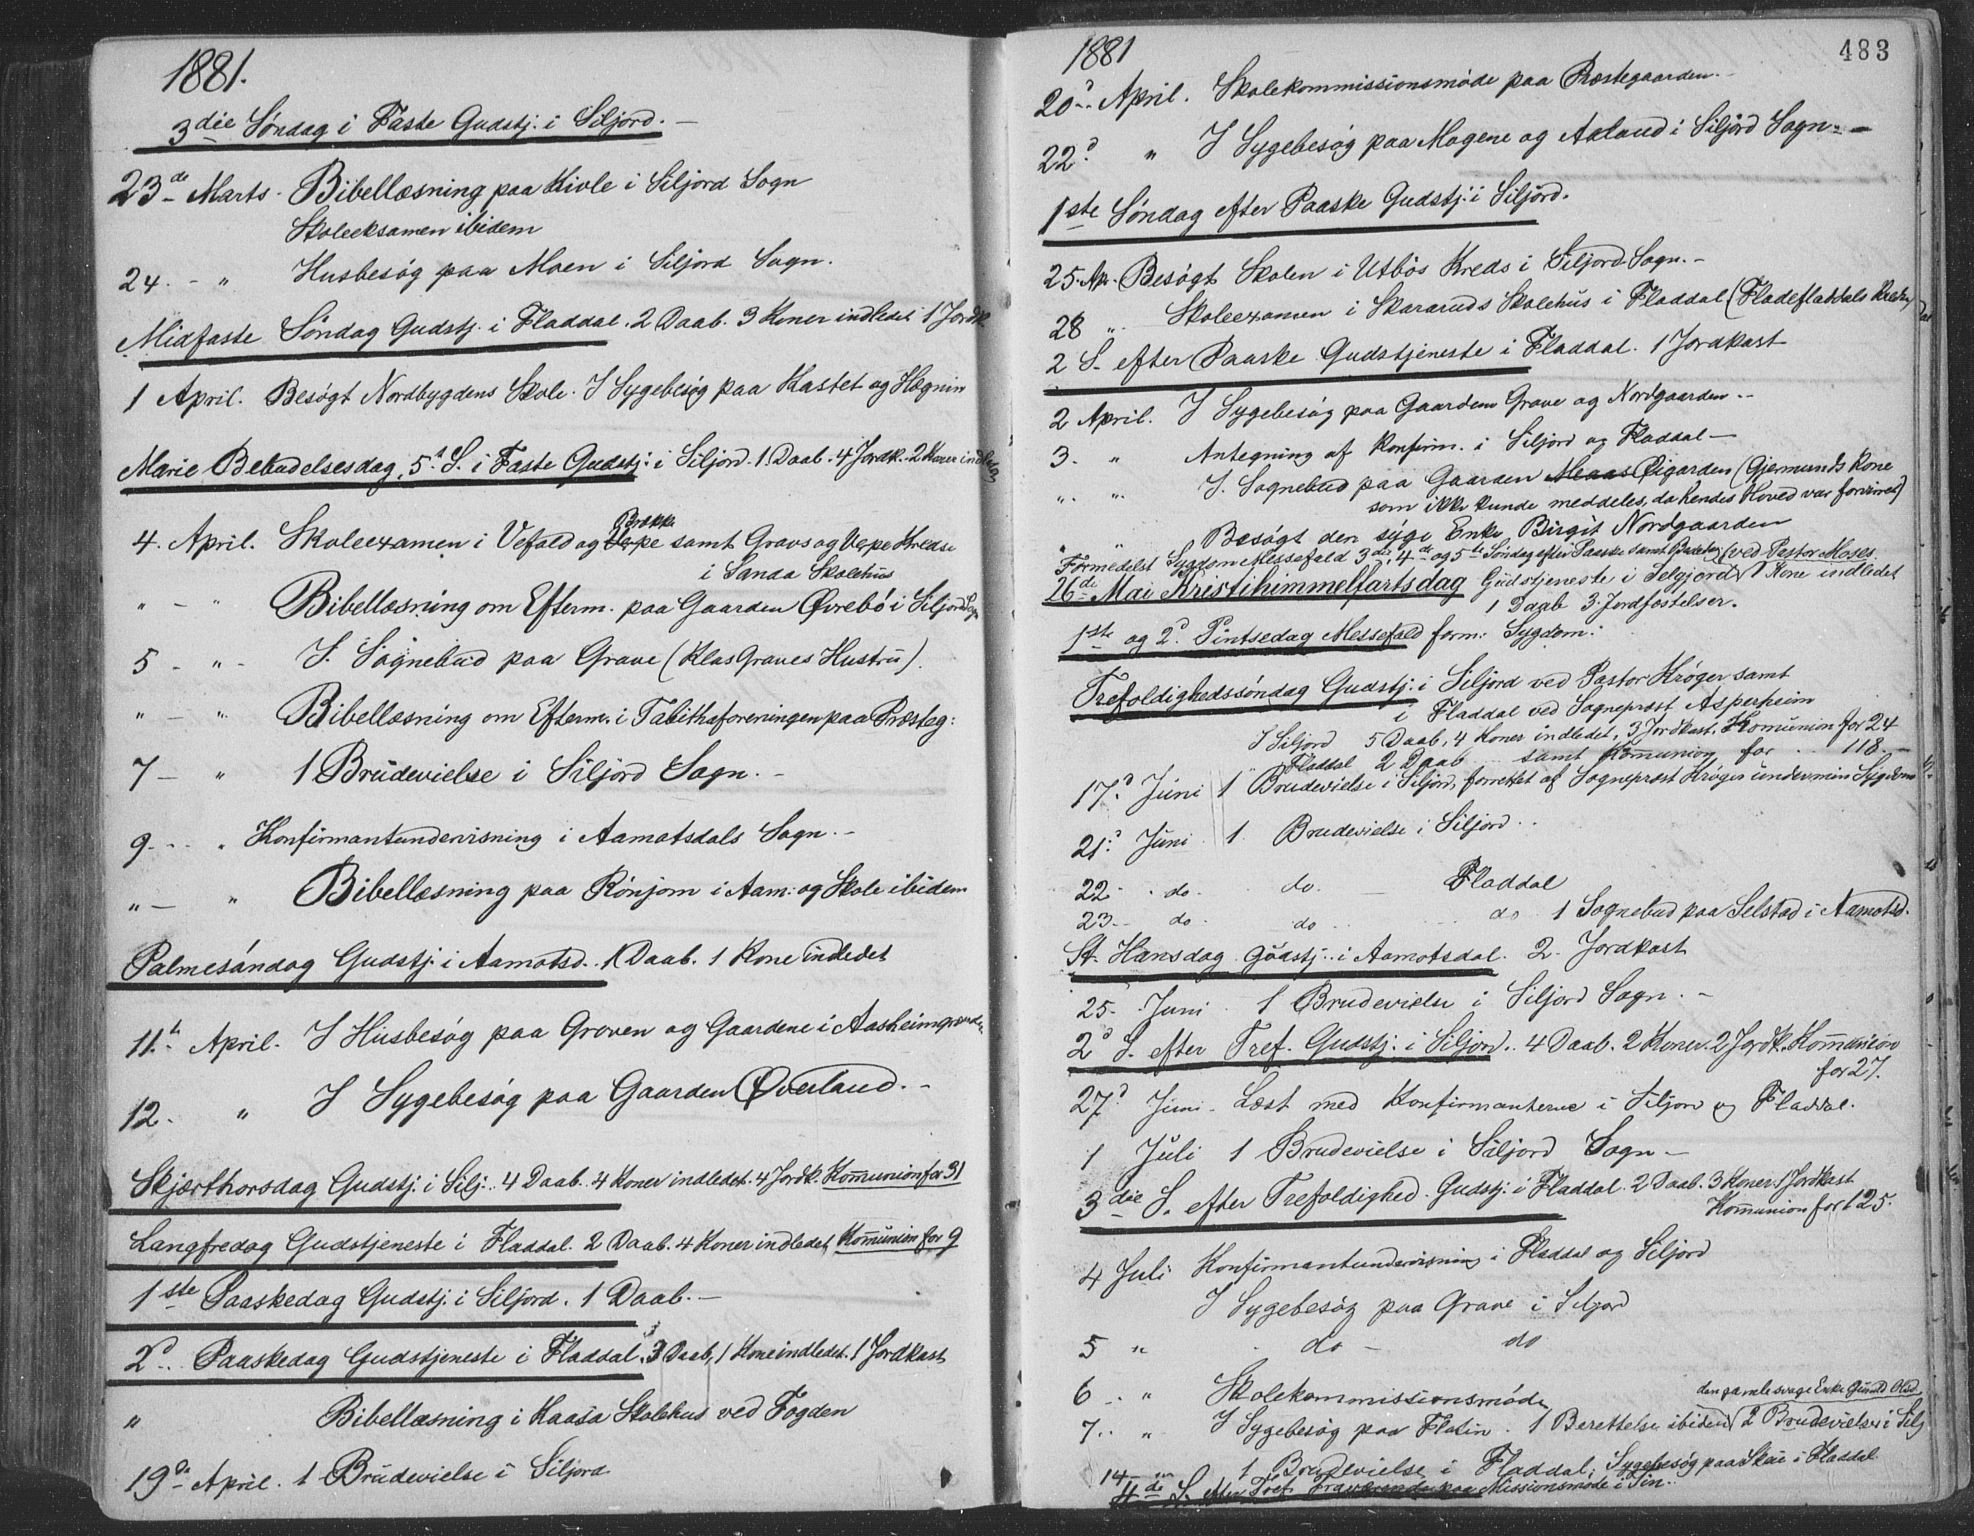 1881.
3die Søndag i Faste Gudstj. i Siljord. —
23de Marts. Bibellæsning paa Kivle i Siljord Sogn
Skoleeksamen ibidem
24. - " Husbesøg paa Moen i Siljord Sogn.
Midfaste Søndag Gudstj. i Fladdal. 2 Daab. 3 Koner indledet 1 Jordk
1 April. Besøgt Nordbygdens Skole. I Sygebesøg paa Kastet og Hegnin
Marie Bebudelsesdag, 5t S. i Faste Gudstj. i Siljord. 1 Daab. 4 Jordk. 2 Koner indledet
4. April. Skoleexamen i Vefald og Brække samt Gravs og Vepe Kredse
i Sanda Skolehus
" - " Bibellæsning om Efterm. paa Gaarden Øvrebø i Siljord Sogn
5 - " - I Sognebud paa Grave (Klas Graves Hustru).
" - " Bibellæsning om Efterm. i Tabithaforeningen paa Præsteg:
7 - " 1 Brudevielse i Siljord Sogn. -
9. - - " Konfirmantundervisning i Aamotsdals Sogn. -
" - " Bibellæsning paa Rönjom i Aam: og Skole ibidem
Palmesøndag Gudstj. i Aamotsd. 1 Daab. 1 Kone indledet
11.te April. I Husbesøg paa Groven og Gaardene i Aasheimgrænden
12. " I Sygebesøg paa Gaarden Øverland. -
Skjærthorsdag Gudstj. i Silj: 4 Daab. 4 Koner indledet. 4 Jordk. Kommunion for 31
Langfredag Gudstjeneste i Fladdal. 2 Daab. 4 Koner indledet, Kommunion for 9
1ste Paaskedag Gudstj. i Siljord. 1 Daab. —
2d. Paaskedag Gudstjeneste i Fladdal. 3 Daab, 1 Kone indledet. 1 Jordkast
" Bibellæsning i Haasa Skolehus ved Fogden
19de April. 1 Brudevielse i Siljord
1881
483
20d. April. Skolekommissionsmøde paa Præstegaarden. -
22d. " I Sygebesøg paa Mogene og Aaland i Siljord Sogn. -
1ste Søndag efter Paaske Gudstj. i Siljord.
25. Ap. Besøgt Skolen i Utbøs Kreds i Siljord Sogn. -
28 " Skoleexamen i Skararuds Skolehus i Fladdal (Fladefladdals Kreds)
2 S. efter Paaske Gudstjeneste i Fladdal. 1 Jordkast
2 April. I Sygebesøg paa Gaardene Grave og Nordgaarden. -
3. " Antegning af Konfirm. i Siljord og Fladdal —
" " I Sognebud paa Gaarden Øigarden (Gjermunds Kone
som ikke kunde meddeles, da hendes Hoved var forvirret)
" " Besøgt den syge Enke Birgit Nordgaarden
Formedelst Sygdom Messefald 3die, 4de og 5te Søndag efter Paaske samt Bededag (ved Pastor Moses
26de Mai Kristihimmelfartsdag Gudstjeneste i Selgjord 1 Kone indledet
1 Daab 3. Jordfæstelser.
1ste og 2d. Pintsedag Messefald form: Sygdom.
Trefoldighedssøndag Gudstj. i Siljord ved Pastor Krøger samt
i Fladdal ved Sogneprest Asperheim
I Siljord 5 Daab, 4 Koner indledet, 3 Jordkast. Komunion for 24
Fladdal 2 Daab samt Kommunion for . . 118. -
17d. Juni 1 Brudevielse i Siljord, forrettet af Sogneprest Krøger under min Sygdom
21d. Juni 1. Brudevielse i Siljord. .
22 . do. do. — Fladdal
23. - do. do . . do 1 Sognebud paa Selstad i Aamotsd.
St. Hansdag Gudstj. i Aamotsdal. 2. Jordkast
25. Juni. 1 Brudevielse i Siljord Sogn. -
2d S. efter Tref. Gudstj. i Siljord. 4 Daab. 2 Koner. 2 Jordk. Kommunion
for 27.
27d Juni. Læst med Konfirmanterne i Siljord og Fladdal.
1 Juli 1 Brudevielse i Siljord Sogn -
3die S. efter Trefoldighed. Gudstj. i Fladdal. 2 Daab. 3 Koner. 1 Jordkast
Kommunion for 125.
4 Juli Konfirmantundervisning i Fladdal og Siljord
I Sygebesøg paa Grave i Siljord
5 " do - do
6 . " Skolekommissionsmøde
den gamle svage Enke Gunild Olsd.
7. . " I Sygebesøg paa Flatin. 1 Berettelse ibidem 2 Brudevielser i Silj
14 - " 1 Brudevielse i Fladdal, Sygebesøg paa Skæi i Fladdal.
4de S. efter Tref. Fraværende paa Missionsmøde i